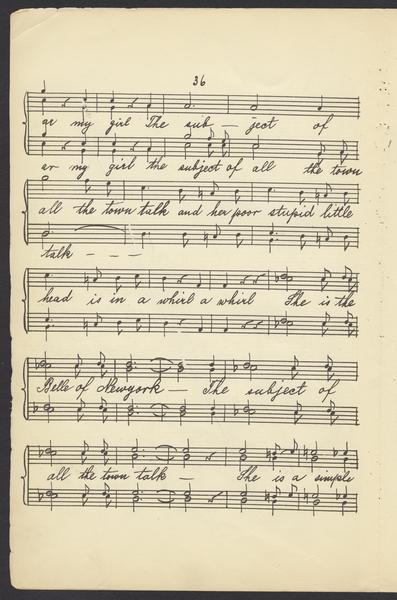 36
ar my girl The sub – ject of
ar my girl the subject of all the town
all the town talk and her poor stupid little
talk – – –
head is in a whirl a whirl She is the
Belle of Newyork – The subject of
all the town talk – She is a simple